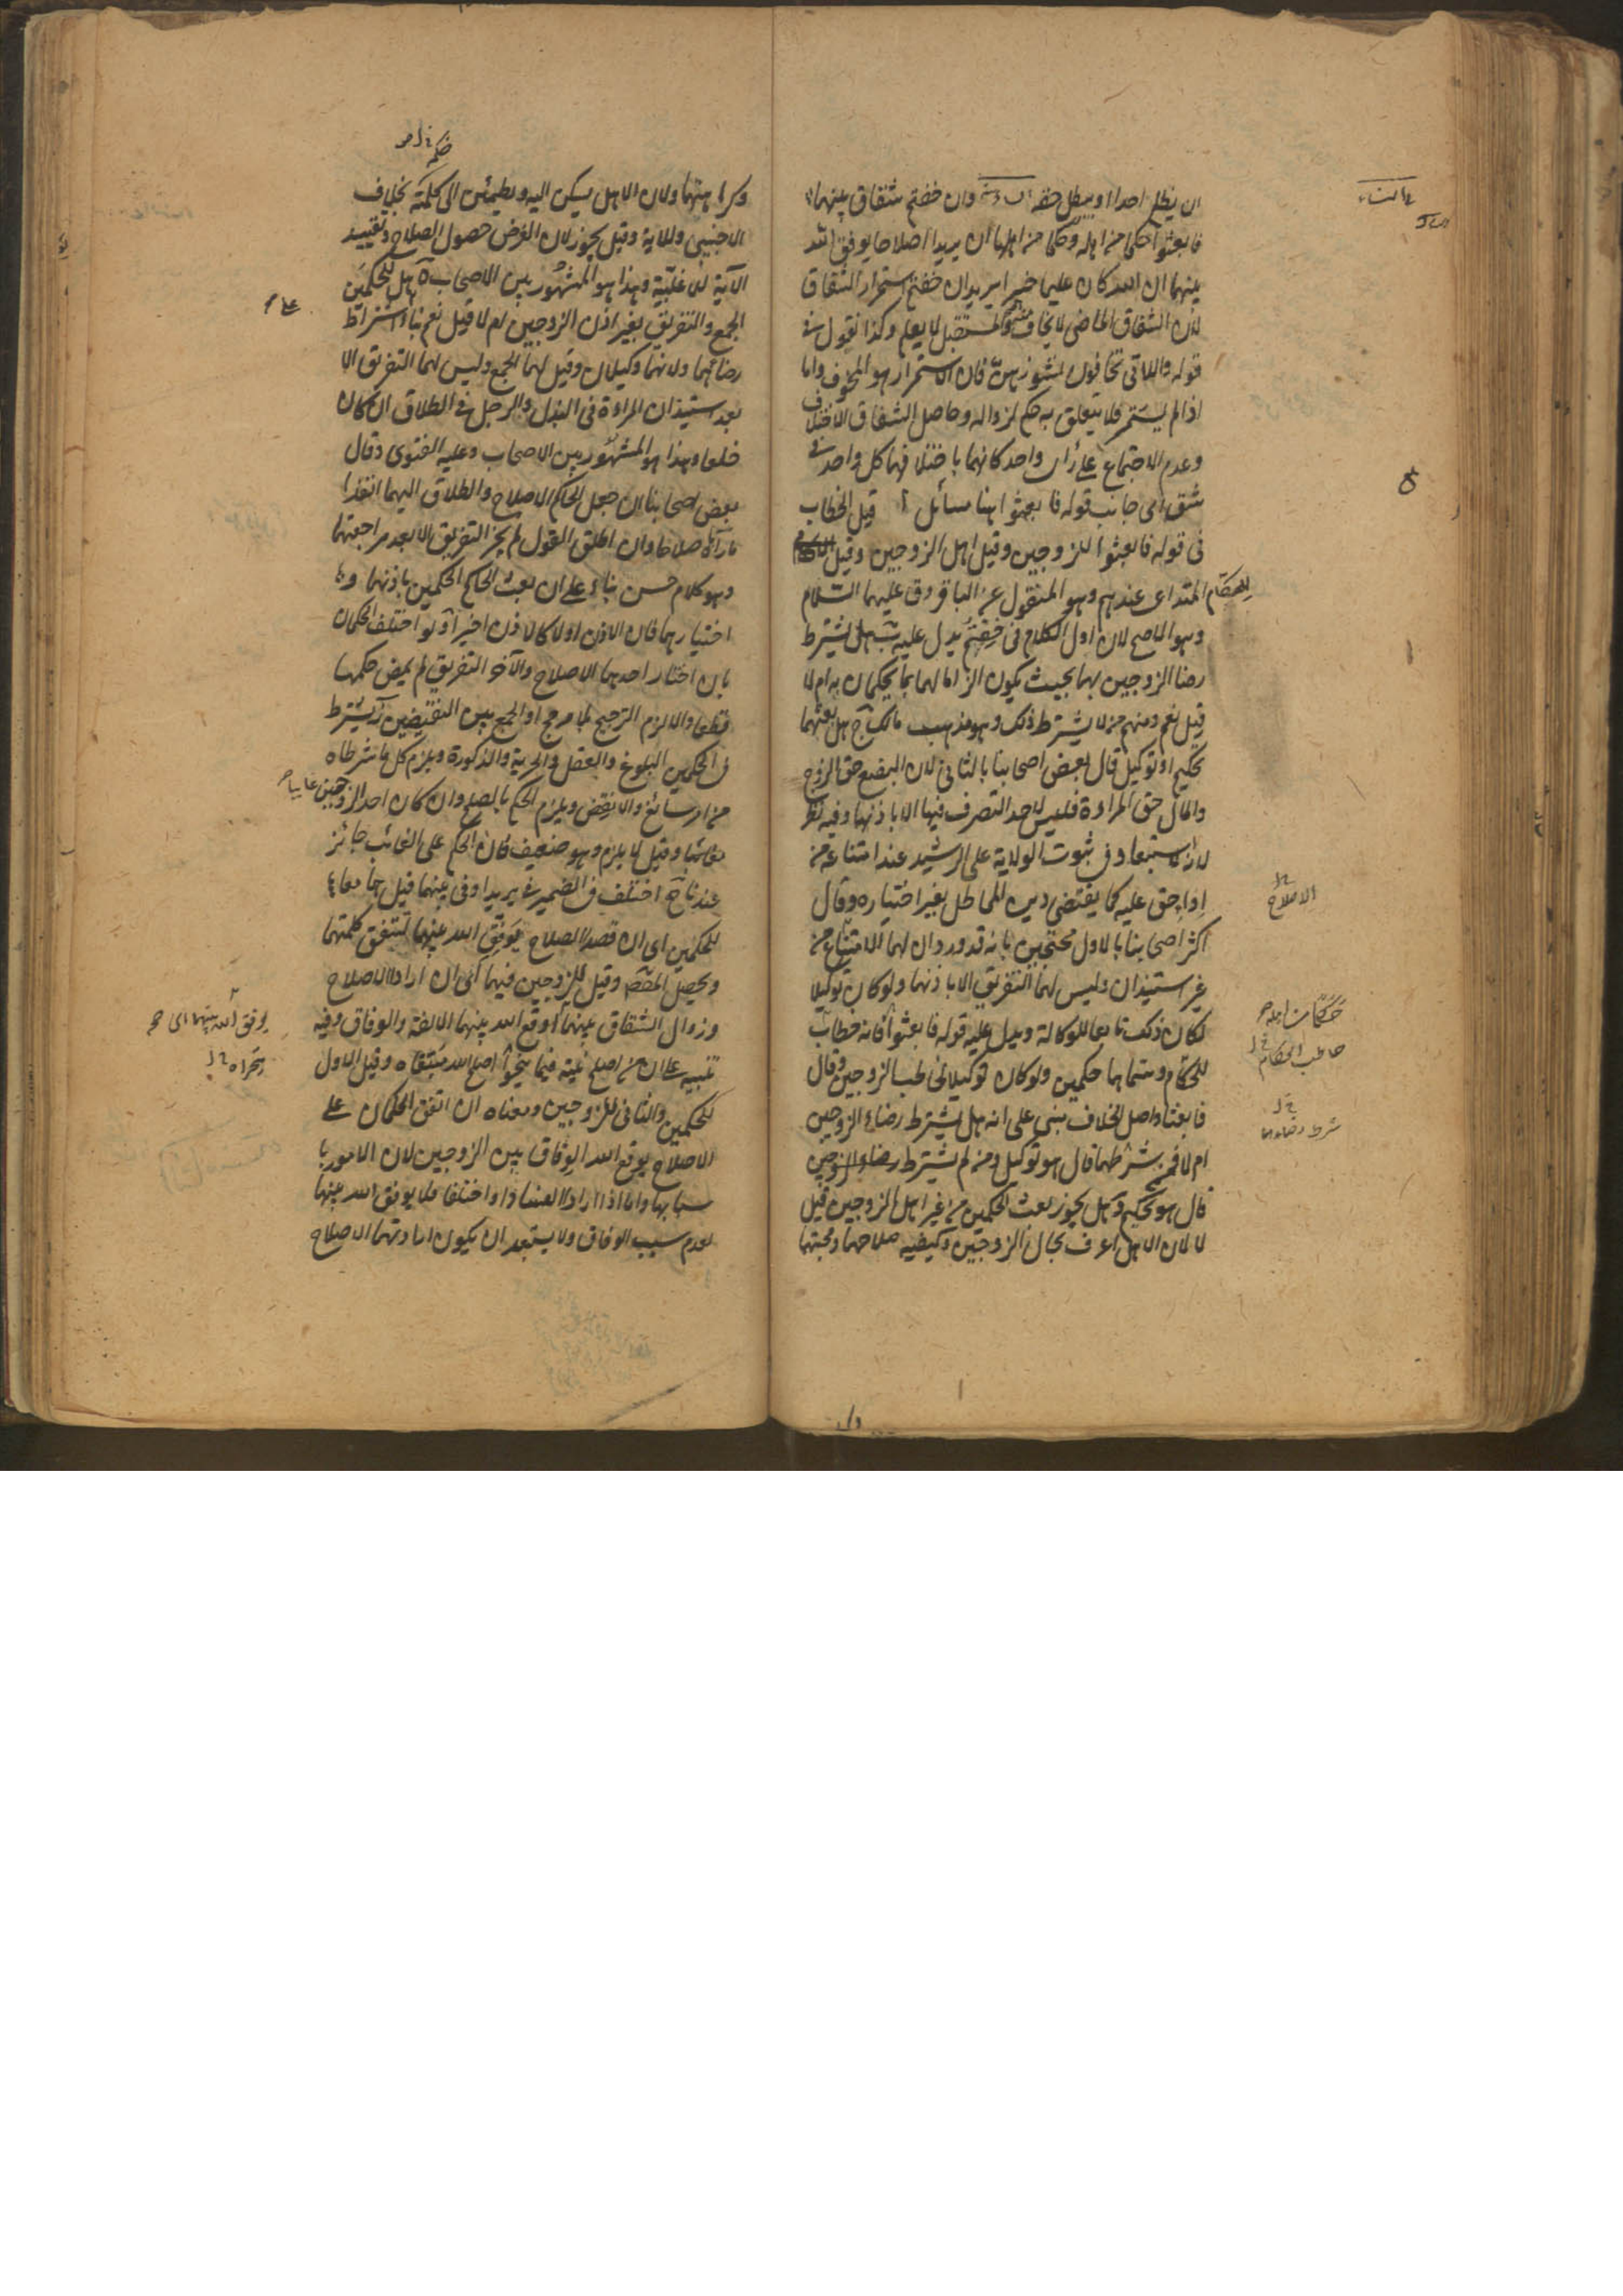 ان يظلم احدا او يبطل حقه وان خفتم شقاق بينهما
فابعثوا حكما من اهله وحكما من اهلها ان يريدا اصلاحا يوفق الله
بينهما ان الله كان عليما خبيرا يريد ان خفتم استمرار الشقاق
لان الشقاق الماضى لا يخاف منه والمستقبل لا يعلم وكذا نقول فى
قوله واللاتى تخافون نشوزهن فان الاستمرار هو المخوف واما
اذا لم يستمر فلا يتعلق به حكم لزواله وحاصل الشقاق الاختلاف
وعدم الاجتماع على راى واحد كانهما باختلافهما كل واحد فى
شق اى جانب قوله فابعثوا هنا مسائل آ قيل الخطاب
فى قوله فابعثوا للزوجين وقيل اهل الزوجين وقيل
للحكام المتداعى عندهم وهو المنقول عن الباقر وق عليهما السلام
وهو الاصح لان اول الكلام فى خفتم يدل عليه ب هل يشترط
رضا الزوجين بهما بحيث يكون الزاما لهما بما يحكمان به ام لا
قيل نعم ومنهم من لا يشترط ذلك وهو مذهب مالك ج هل بعثهما
تحكيم او توكيل قال بعض اصحابنا بالثانى لان البضع حق الزوج
والمال حق المراة فليس لاحد التصرف فيهما الا باذنهما وفيه نظر
لانه لا استبعاد فى ثبوت الولاية على الرشيد عند امتناعه من
اداء حق عليه كما يقتضى دين المماطل بغير اختياره وقال
اكثر اصحابنا بالاول محتجين بانه قد ورد ان لهما الامتناع من
غير استيذان وليس لهما التفريق الا باذنهما ولو كان توكيلا
لكان ذلك تابعا للوكالة ويدل عليه قوله فابعثوا فانه خطاب
للحكام وسماهما حكمين ولو كان توكيلا لخاطب الزوجين وقال
فابعثا واصل الخلاف مبنى على انه هل يشترط رضاء الزوجين
ام لا فمن شرطهما قال هو توكيل ومن لم يشترط رضاء الزوجين
قال هو تحكيم د هل يجوز بعث الحكمين من غير اهل الزوجين قيل
لا لان الاهل اعرف بحال الزوجين وكيفية صلاحهما ومحبتهما
النساء
الاصلاح
حكما من اهله
خاطب الحكام
شرط رضاهما
وكراهتهما ولان الاهل يسكن اليه ويطمئن الى كلمته بخلاف
الاجنبى وللاية وقيل يجوز لان الغرض حصول الصلاح وتقييد
الآية للاغلبية وهذا هو المشهور بين الاصحاب ه هل للحكمين
الجمع والتفريق بغير اذن الزوجين ام لا قيل نعم بناء اشتراط
رضائهما ولانهما وكيلان وقيل لهما الجمع وليس لهما التفريق الا
بعد استيذان المراءة فى البذل والرجل فى الطلاق ان كان
خلعا وهذا هو المشهور بين الاصحاب وعليه الفتوى وقال
بعض اصحابنا ان جعل الحاكم الاصلاح والطلاق اليهما انفذا
ما رآياه صلاحا وان اطلق القول لم يجز التفريق الا بعد مراجعتهما
وهو كلام حسن بناء على ان بعث الحاكم الحكمين باذنهما و
اختيارهما فان الاذن اولا كالاذن اخيرا و لو اختلف الحكمان
بان اختار احدهما الاصلاح والآخر التفريق لم يمض حكمهما
قطعا والا لزم الترجيح بلا مرجح او الجمع بين النقيضين ز يشترط
فى الحكمين البلوغ والعقل والحرية والذكورة ويلزم كل ما شرطاه
من امر سائغ والا نقض ويلزم الحكم بالصلح وان كان احد الزوجين غايبا
وقيل لا يلزم وهو ضعيف فان الحكم على الغائب جائز
عندنا ح اختلف فى الضمير فى يريدا وفى بينهما قيل هما معا
للحكمين اى ان قصدا الصلاح يوفق الله بينهما لتتفق كلمتهما
ويحصل المقصد وقيل للزوجين فيهما اى ان ارادا الاصلاح
وزوال الشقاق بينهما اوقع الله بينهما الالفة والوفاق وفيه
تنبيه على ان من اصلح نيته فيما ينحوا اصلح الله مبتغاه وقيل الاول
للحكمين والثانى للزوجين ومعناه ان اتفق الحكمان على
الاصلاح يوقع الله الوفاق بين الزوجين لان الامور با
سبابها واما اذا ارادا العناد او اختلفا فلا يوفق الله بينهما
لعدم سبب الوفاق ولا يستبعد ان يكون ارادتهما الاصلاح
يوفق الله بينهما اى